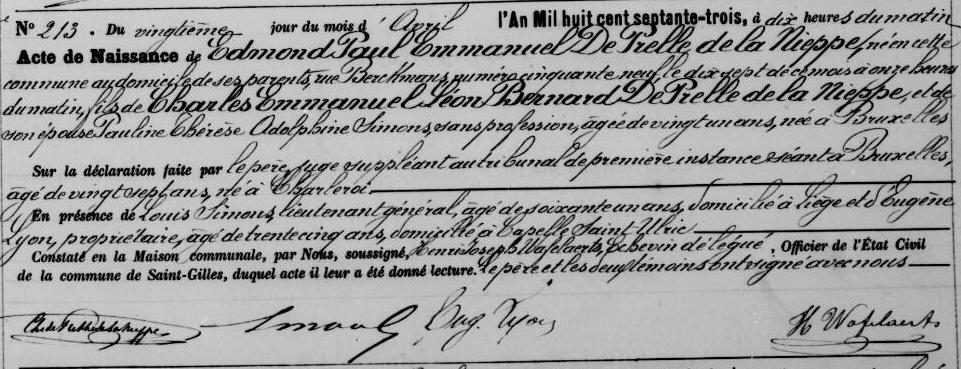 N° 213. Du vingtième jour du mois d'Avril l'An Mil huit cent septante-trois, à dix heures du matin
Acte de Naissance de Edmond Paul Emmanuel De Prelle de la Nieppe, né en cette
commune au domicile de ses parents, rue Berckmans, numéro cinquante neuf, le dix sept de ce mois à onze heures
du matin, fils de Charles Emmanuel Léon Bernard De Prelle de la Nieppe, et de
son épouse Pauline Thérèse Adolphine Simons, sans profession, âgée de vingt un ans, née à Bruxelles
Sur la déclaration faite par le père, juge suppléant au tribunal de première instance séant à Bruxelles,
âgé de vingt sept ans, né à Charleroi.
En présence de Louis Simons, lieutenant général, âgé de soixante un ans, domicilié à Liège et d'Eugène
Lyon, propriétaire, âgé de trente cinq ans, domicilié à Capelle Saint Ulric
Constaté en la Maison communale, par Nous, soussigné, Henri Joseph Wafelaerts, Echevin délégué, Officier de l'État Civil
de la commune de Saint-Gilles, duquel acte il leur a été donné lecture. Le père et les deux témoins ont signé avec nous
Ch. de Prelle de la Nieppe Simons Eug. Lyon H Wafelaerts